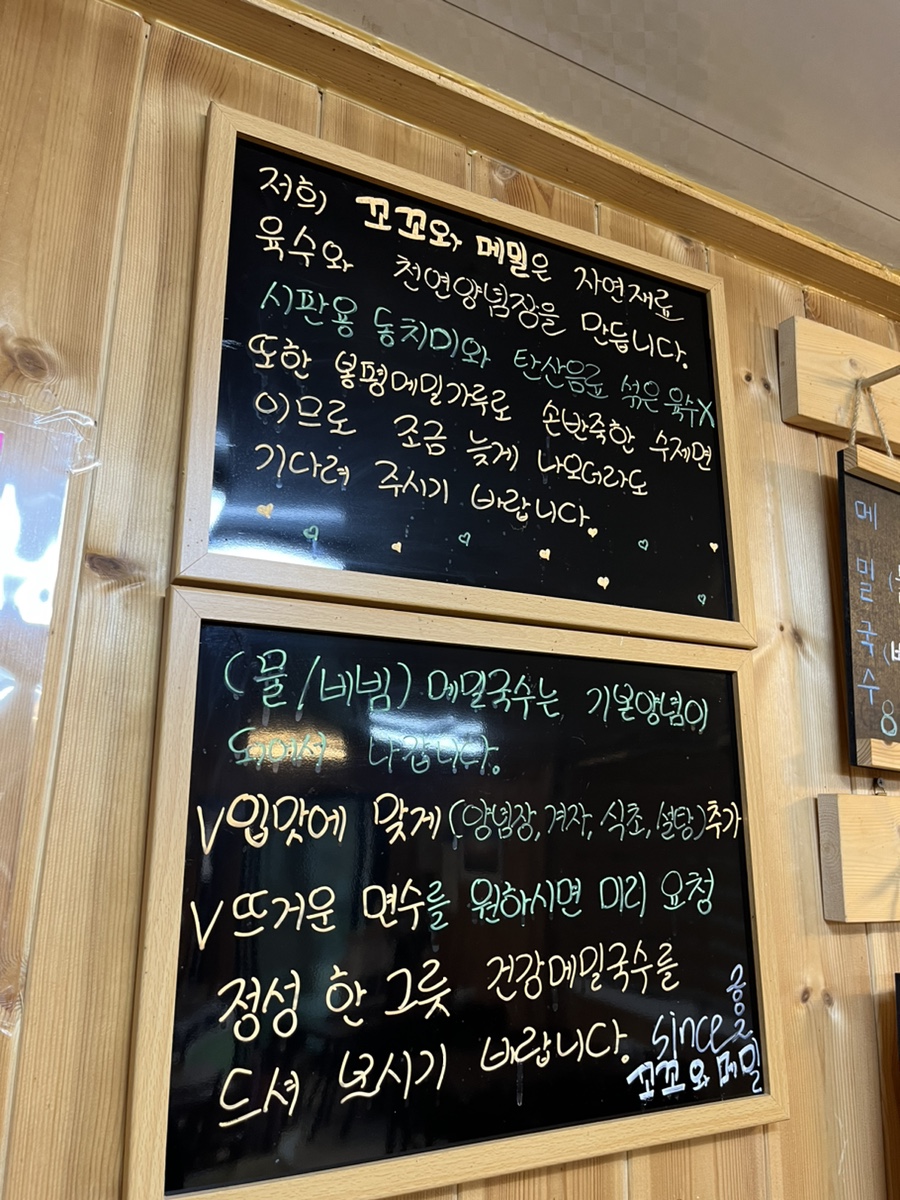 저희 꼬꼬와 메밀은 자연재료
육수와 천연양념장을 만듭니다.
시판용 동치미와 탄산음료 섞은 육수X
또한 봉평메밀가루로 손반죽한 수제면
이므로 조금 늦게 나오더라도
기다려 주시기 바랍니다.
(물/비빔) 메밀국수는 기본양념이
되어서 나갑니다.
V입맛에 맞게(양념장,겨자,식초,설탕)추가
V뜨거운 면수를 원하시면 미리 요청
정성 한 그릇 건강메밀국수를
드셔 보시기 바랍니다.
since
꼬꼬와 메밀
메
밀
국
수
8